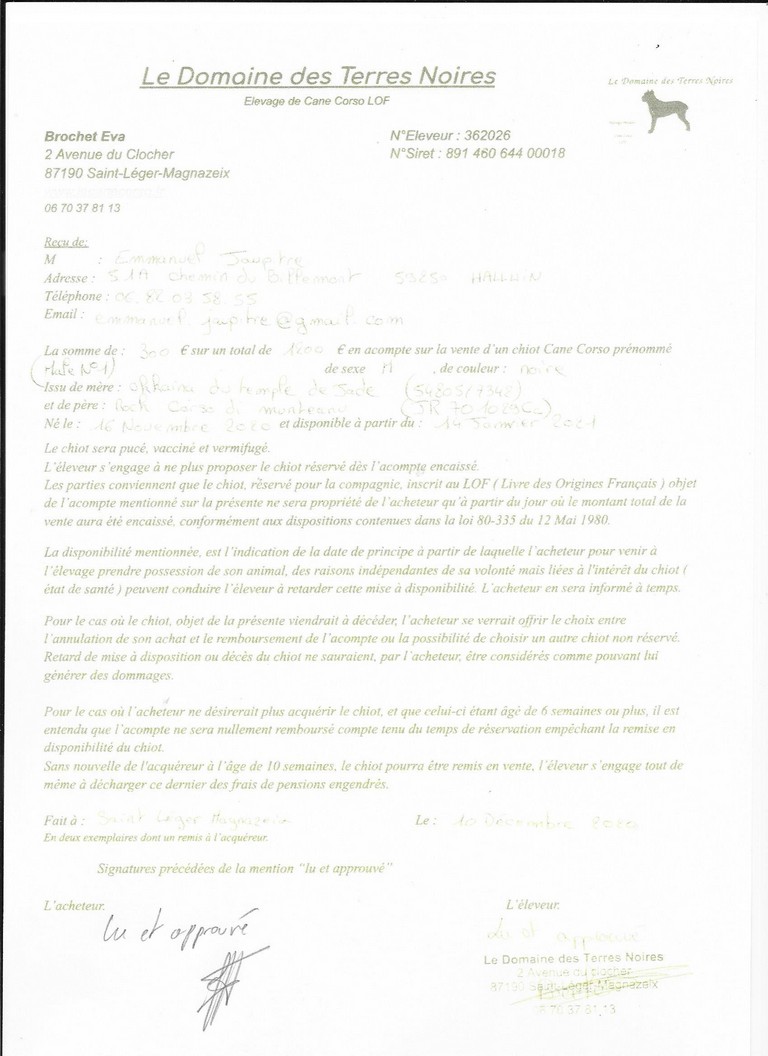 Le Domaine des Terres Noires
Elevage de Cane Corso LOF
Le Domaine des Terres Noires
Brochet Eva
2 Avenue du Clocher
87190 Saint-Léger-Magnazeix
06 70 37 81 13
N°Eleveur : 362026
N°Siret : 891 460 644 00018
Reçu de:
M : Emmanuel Jaupitre
Adresse : 519 chemin du 59250 HALLUIN
Téléphone : 06. 82 03 58. 55
Email : emmanuel jaupitre@gmail.com
La somme de : 300 € sur un total de 1200 € en acompte sur la vente d'un chiot Cane Corso prénommé
(Male N°1) de sexe M , de couleur : noire
Issu de mère : du temple de Jade (54805/7348)
et de père : Rock Corso di (JR 701029Ca)
Né le : 16 Novembre 2020 et disponible à partir du : 14 Janvier 2021
Le chiot sera pucé, vacciné et vermifugé.
L'éleveur s'engage à ne plus proposer le chiot réservé dès l'acompte encaissé.
Les parties conviennent que le chiot, réservé pour la compagnie, inscrit au LOF ( Livre des Origines Français ) objet
de l'acompte mentionné sur la présente ne sera propriété de l'acheteur qu'à partir du jour où le montant total de la
vente aura été encaissé, conformément aux dispositions contenues dans la loi 80-335 du 12 Mai 1980.
La disponibilité mentionnée, est l'indication de la date de principe à partir de laquelle l'acheteur pour venir à
l'élevage prendre possession de son animal, des raisons indépendantes de sa volonté mais liées à l'intérêt du chiot (
état de santé ) peuvent conduire l'éleveur à retarder cette mise à disponibilité. L'acheteur en sera informé à temps.
Pour le cas où le chiot, objet de la présente viendrait à décéder, l'acheteur se verrait offrir le choix entre
l'annulation de son achat et le remboursement de l'acompte ou la possibilité de choisir un autre chiot non réservé.
Retard de mise à disposition ou décès du chiot ne sauraient, par l'acheteur, être considérés comme pouvant lui
générer des dommages.
Pour le cas où l'acheteur ne désirerait plus acquérir le chiot, et que celui-ci étant âgé de 6 semaines ou plus, il est
entendu que l'acompte ne sera nullement remboursé compte tenu du temps de réservation empêchant la remise en
disponibilité du chiot.
Sans nouvelle de l'acquéreur à l'âge de 10 semaines, le chiot pourra être remis en vente, l'éleveur s'engage tout de
même à décharger ce dernier des frais de pensions engendrés.
Fait à : Saint Léger Magnazeix Le : 10 Décembre 2020
En deux exemplaires dont un remis à l'acquéreur.
Signatures précédées de la mention "lu et approuvé"
L'acheteur. L'éleveur.
lu et approuvé
Lu et approuvé
Le Domaine des Terres Noires
2 Avenue du clocher
87190 Saint-Léger-Magnazeix
6 70 37 81 13